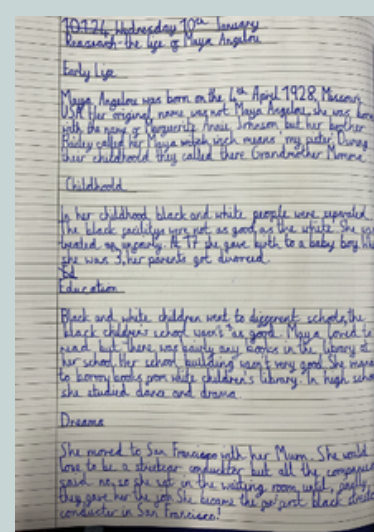 10.1.24 Wednesday 10th January
Research the life of Maya Angelou
Early Life
Maya Angelou was born on the 4th April 1928, Missouri
USA. Her original name was not Maya Angelou, she was born
with the name of Marguerite Annie Johnson but her brother
Bailey called her Maya which means my sister. During
their childhood they called there Grandmother Momma
Childhood
In her childhood, black and white people were separated
The black facilitys were not as good as the white. She was
treated so unfairly. At 17 she gave birth to a baby boy
she was 3, her parents got divorced.
Ed
Education
Black and white children went to different schools, the
black children's school wasn't as good. Maya loved to
read but there was hardly any books in the library at
her school. Her school building wasn't very good. She
to borrow books from white children's library. In high school
she studied dance and drama.
Dreams
She moved to San Francisco with her Mum. She would
love to be a streetcar conductor but all the companies
said no, so she sat in the waiting room until, finally,
they gave her the job. She became the first black
conductor in San Francisco!